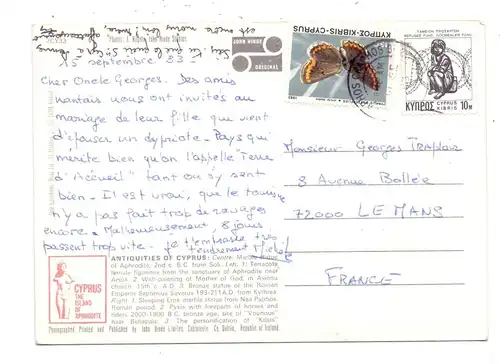 15 septembre 83
Cher Oncle Georges. Des amis
nantais nous ont invités au
mariage de leur fille qui vient
d'épouser un cypriote. Pays qui
mérite bien qu'on l'appelle "Terre
d'Accueil" tant on s'y sent
bien. Il est vrai, que le tourisme
n'y a pas fait trop de ravages
encore. Malheureusement, 8 jours
passent trop vite. Je t'embrasse très
tendrement Michèle
JOHN HINDE
ORIGINAL
ΚΥΠΡΟΣ-KIBRIS-CYPRUS
ΚΥΠΡΟΣ CYPRUS KIBRIS 10
Monsieur Georges
8 Avenue Bollée
72000 LE MANS
FRANCE
CYPRUS
THE
ISLAND
OF
APHRODITE
ANTIQUITIES OF CYPRUS: Centre. Marble statue
of Aphrodite, 2nd c. B.C. from Soli. Left. 1: Terracotta
female figurines from the sanctuary of Aphrodite near
Arsos. 2: Wall-painting of Mother of God in Asinou
church. 15th c. A.D. 3: Bronze statue of the Roman
Emperor Septimius Severus 193-211A.D. from Kythrea.
Right: 1: Sleeping Eros marble statue from Nea Paphos.
Roman period. 2: Pyxis with foreparts of horses and
riders. 2000-1800 B.C. bronze age, site of "Vounous"
near Bellapais. 3: The personification of "Ktisis"
Photographed, Printed and Published by John Hinde Limited, Cabinteely, Co. Dublin, Republic of Ireland.